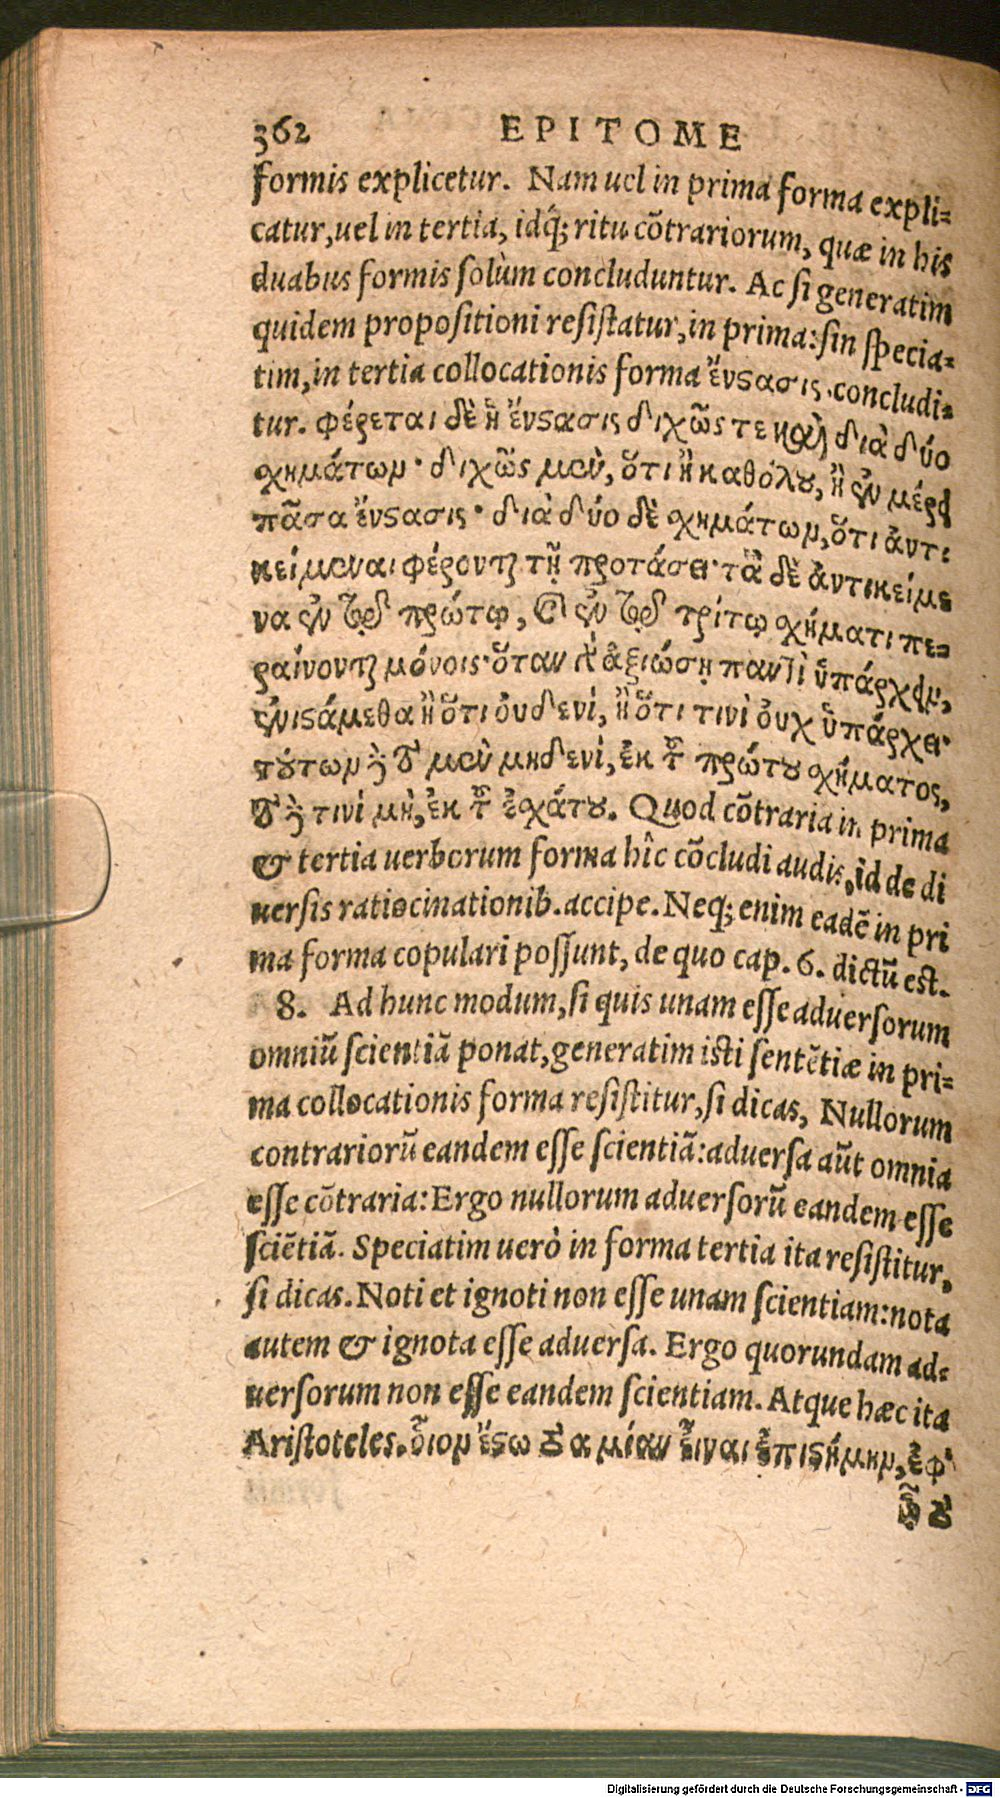 362 EPITOME
formis explicetur. Nam uel in prima forma expli=
catur, uel in tertia, idq́; ritu cõtrariorum, quæ in his
duabus formis ſolùm concluduntur. Ac ſi generatim
quidem propoſitioni reſiſtatur, in prima: ſin ſpecia=
tim, in tertia collocationis forma ἔνϛασις. concludi=
tur. φέρεται δὲ ἡ ἔνϛασις διχῶς τε καὶ διὰ δύο
χημάτωμ· διχῶς μὲν, ὅτι ἢ καθόλου, ἢ ἐν μέρει
πᾶσα ἔνϛασις· διὰ δύο δὲ χημάτωμ, ὅτι ἀντι
κείμεναι φέρονται τῇ προτάσει· τὰ δὲ ἀντικείμε
να ἐν τῷ πρώτῳ, καὶ ἐν τῷ τρίτῳ χήματι πε=
ραίνονται μόνοις· ὅταν γὰ ἀξιώσῃ παντὶ ὑπάρχειν,
ἐνιϛάμεθα ἢ ὅτι οὐδενὶ, ἢ ὅτι τινὶ οὐχ ὑπάρχει·
τούτωμ δὲ τὸ μὲν μηδενὶ, ἐκ τοῦ πρώτου χήματος,
τὸ δὲ τινὶ μὴ, ἐκ τοῦ ἐχάτου. Quod cõtraria in prima
& tertia uerborum forma hîc cõcludi audis, id de di
uerſis ratiocinationib. accipe. Neq; enim eadẽ in pri
ma forma copulari poſſunt, de quo cap. 6. dictũ eſt.
8. Ad hunc modum, ſi quis unam eſſe aduerſorum
omniũ ſcientiã ponat, generatim iſti ſentẽtiæ in pri=
ma collocationis forma reſiſtitur, ſi dicas, Nullorum
contrariorũ eandem eſſe ſcientiã: aduerſa aũt omnia
eſſe cõtraria: Ergo nullorum aduerſorũ eandem eſſe
ſciẽtiã. Speciatim uerò in forma tertia ita reſiſtitur,
ſi dicas. Noti et ignoti non eſſe unam ſcientiam: nota
autem & ignota eſſe aduerſa. Ergo quorundam ad=
uerſorum non eſſe eandem ſcientiam. Atque hæc ita
Ariſtoteles. οἷομ ἔϛω γα μίαν εἶναι ἐπιϛήμημ, ἐφ'
Digitalisierung gefördert durch die Deutsche Forschungsgemeinschaft - DFG